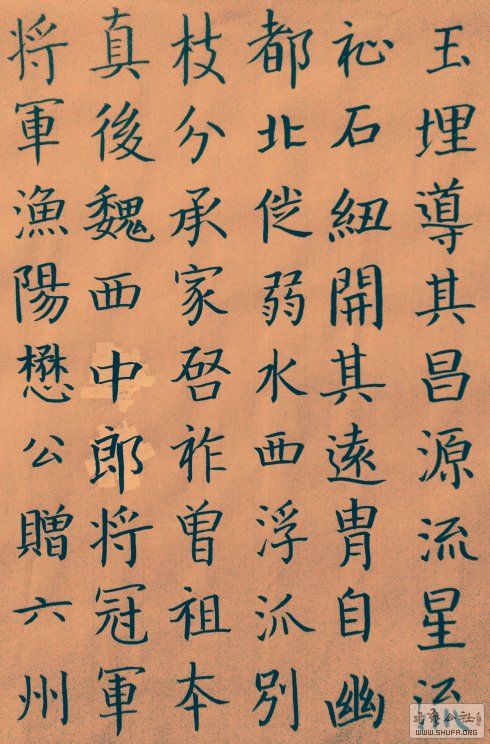 玉埋導其昌源流星
祉石紐開其遠胄自幽
都北徙弱水西浮派別
枝分承家啓祚曾祖本
真後魏西中郎将冠軍
将軍漁陽懋公贈六州
公社
WWW.SHUFA.ORG